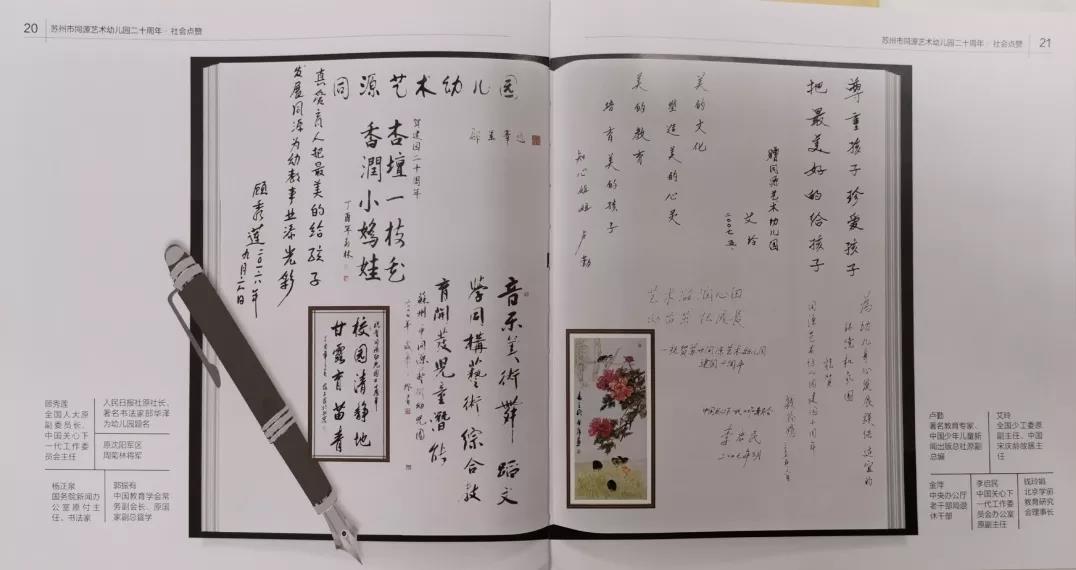 20
苏州市同源艺术幼儿园二十周年 社会点赞
同源艺术幼儿园
贺建园二十周年
杏坛一枝花
香润小娇娃
丁酉年
真爱育人把最美的给孩子
发展同源为幼教事业添光彩
顾秀莲 二〇一八年
九月六日
音乐美术舞蹈文
学同构艺术综合教
育开发儿童潜能
校园清静地
甘露育苗青
顾秀莲
全国人大原
副委员长、
中国关心下
一代工作委
员会主任
人民日报社原社长、
著名书法家邵华泽
为幼儿园题名
原沈阳军区
周菊林将军
杨正泉
国务院新闻办
公室原付主
任、书法家
郭振有
中国教育学会常
务副会长、原国
家副总督学
苏州市同源艺术幼儿园二十周年 社会点赞
21
尊重孩子珍爱孩子
把最美好的给孩子
赠同源艺术幼儿园
艾玲
二〇〇七五
美的文化
塑造美的心灵
美的教育
培育美的孩子
知心姐姐 卢勤
艺术滋润心田
祝贺苏州同源艺术幼儿园
建园十周年
李启民
为幼儿身心发展提供适宜的
环境和氛围
祝贺
同源艺术幼儿园建园十周年
卢勤
著名教育专家、
中国少年儿童新
闻出版总社原副
总编
艾玲
全国少工委原
副主任、中国
宋庆龄故居主
任
金萍
中央办公厅
老干部局退
休干部
李启民
中国关心下
一代工作委
员会办公室
原副主任
钱玲娟
北京学前
教育研究
会理事长